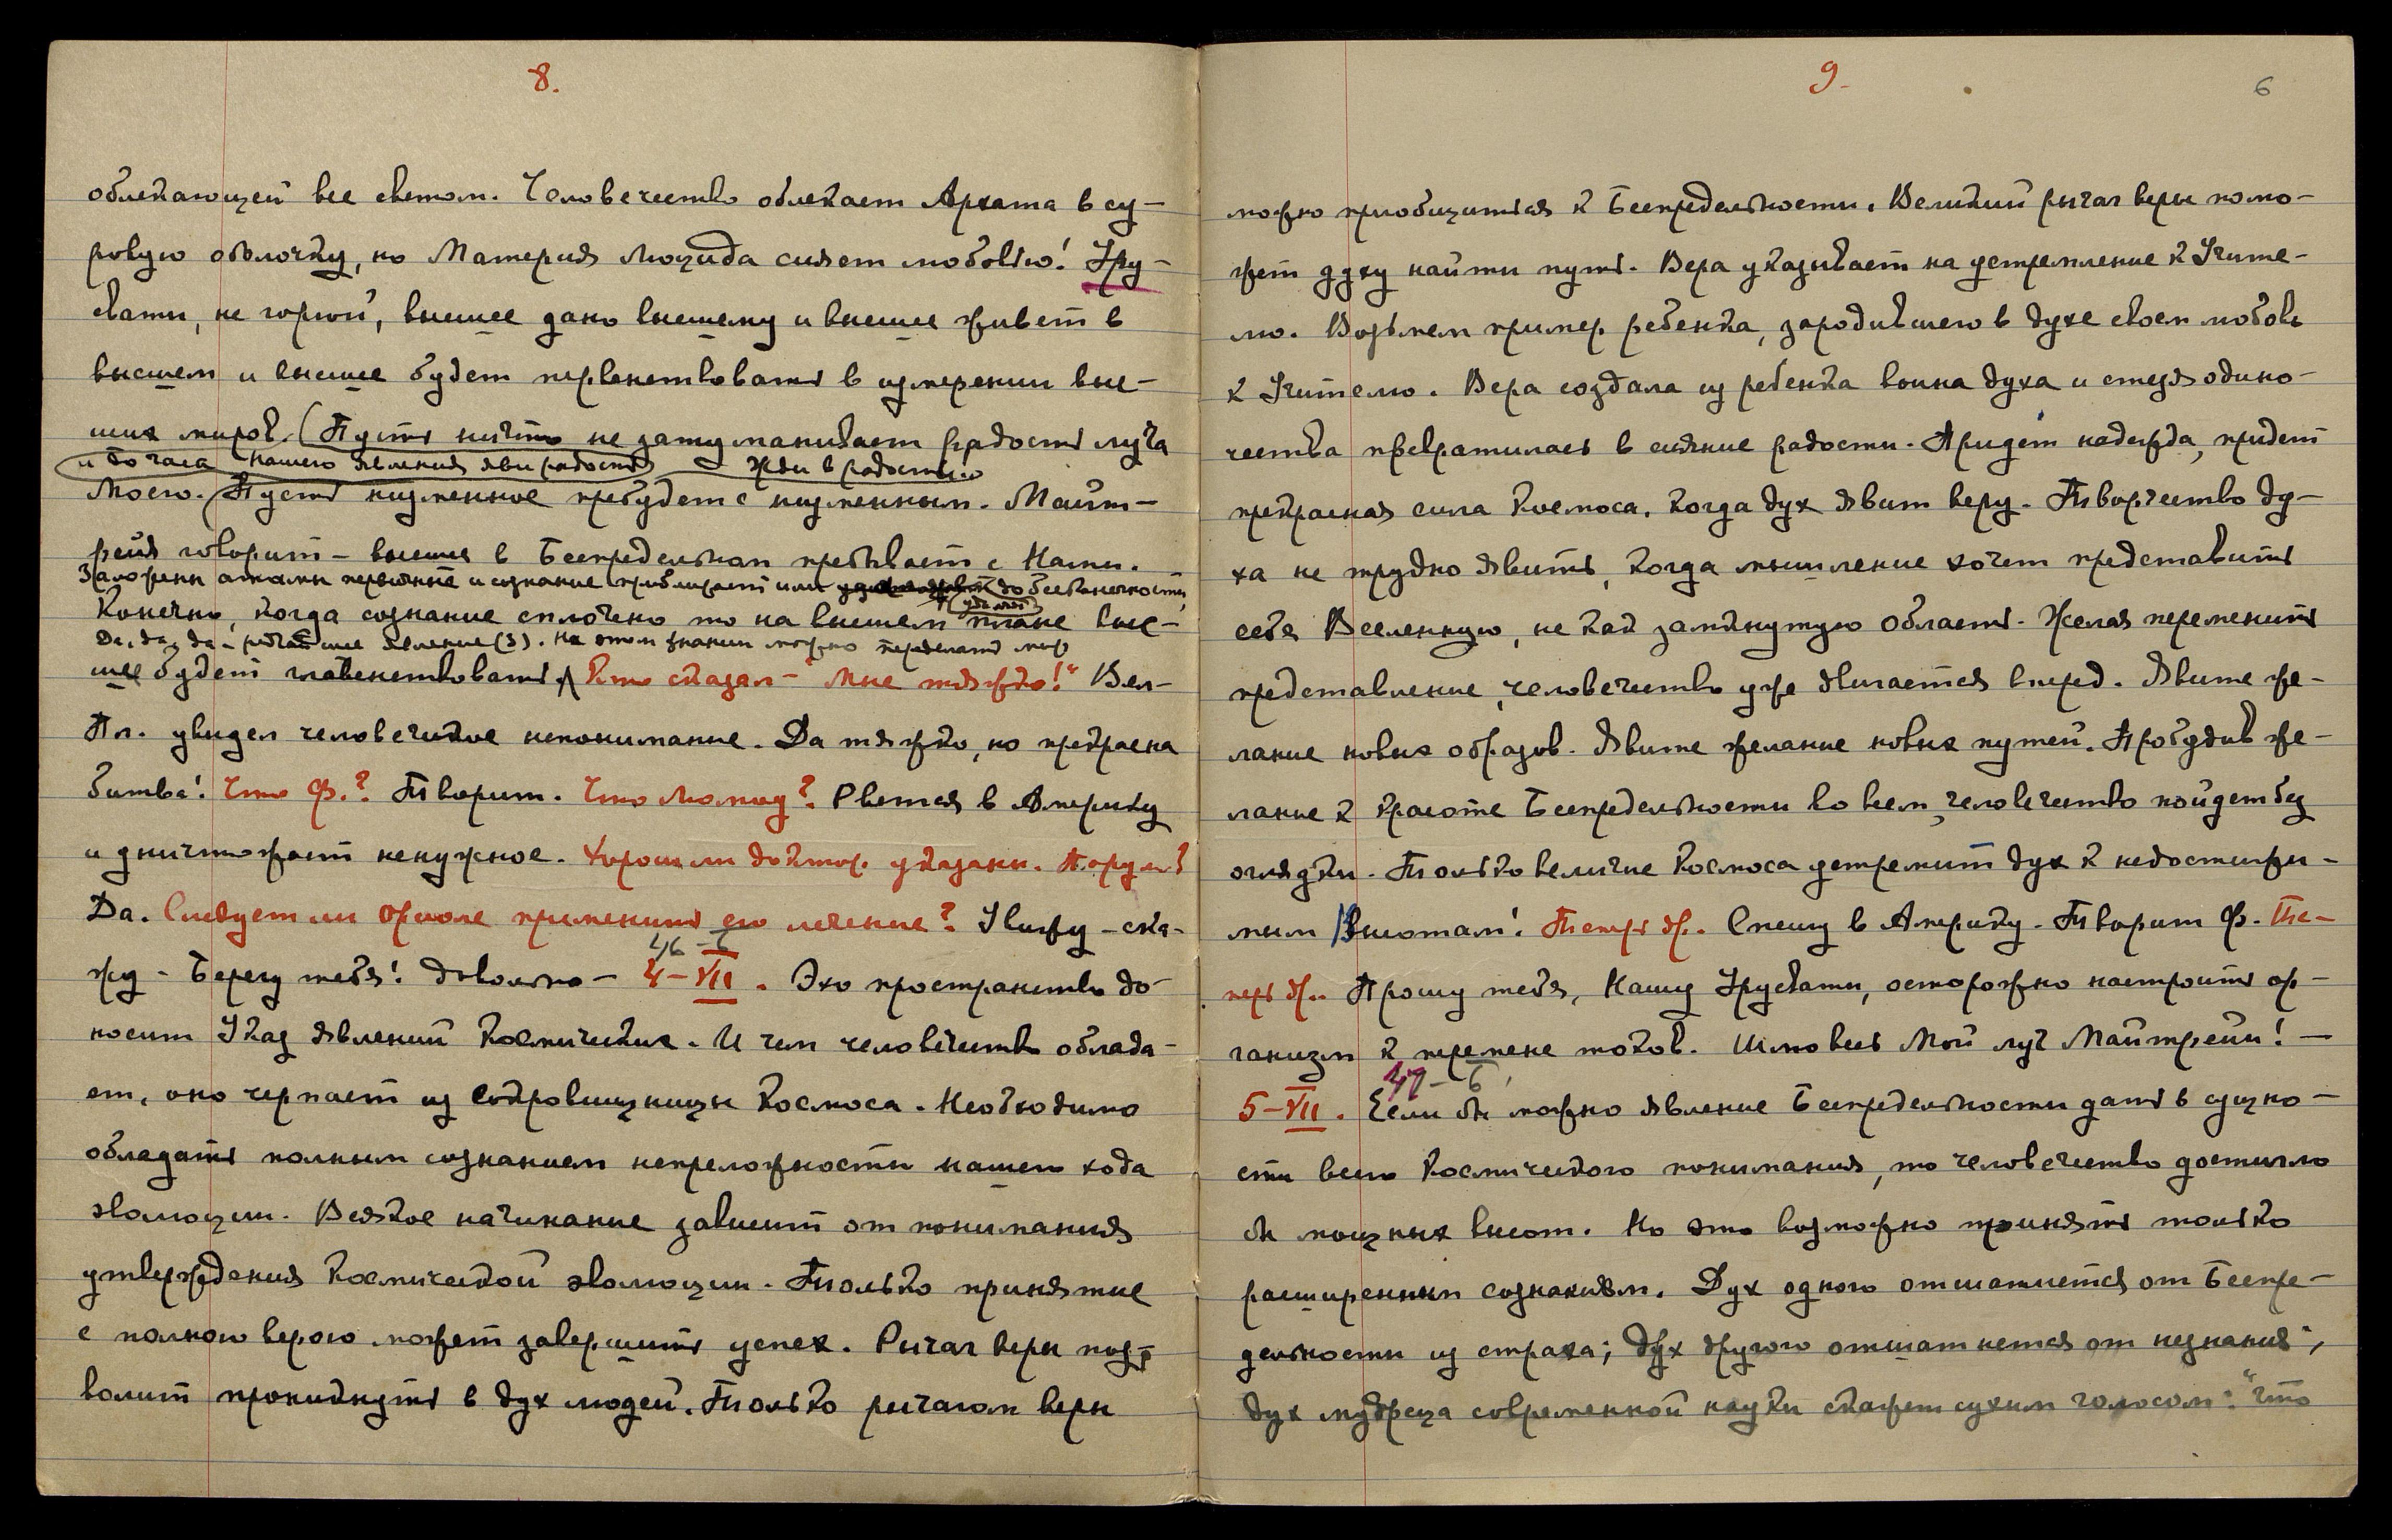 8.
облекающей все светом. Человечество облекает Архата в су-
ровую оболочку, но Материя Люцида сияет любовью! Уру-
свати, не горюй, высшее дано высшему и высшее живет в
высшем и высшее будет первенствовать в измерении выс-
ших миров. (Пусть ничто не затуманивает радость луча
и до часа нашего явления яви радость жди в радости
Моего. Пусть низменное пребудет с низменным. Майт-
рейя говорит – высшее в Беспредельном пребывает с Нами.
Заложены атомы первичные и сознание приближает или до бесконечности,
удаляет
Конечно, когда сознание сплочено то на высшем плане выс-
Да, да, да – редчайшее явление (3). На этом знании можно переделать мир
шее будет главенствовать. Кто сказал – "Мне тяжко!" Вел-
Пл. увидел человеческое непонимание. Да тяжко, но прекрасна
битва! Что Ф.? Творит. Что Логид? Рвется в Америку
и уничтожает ненужное. Хорош ли доктор указанн. Порум?
Да. Следует ли Ориоле применить его лечение? Увижу – ска-
жу – Берегу тебя! Довольно –
46 – б
4–VII. Эхо пространства до-
носит Указ явлений Космических. И чем человечество облада-
ет, оно черпает из Сокровищницы Космоса. Необходимо
обладать полным сознанием непреложности нашего хода
эволюции. Всякое начинание зависит от понимания
утверждения Космической эволюции. Только принятие
с полною верою может завершить успех. Рычаг веры поз-
волит проникнуть в дух людей. Только рычагом веры
9.
6
можно приобщиться к Беспредельности. Великий рычаг веры помо-
жет духу найти путь. Вера указывает на устремление к Учите-
лю. Возьмем пример ребенка, зародившего в духе своем любовь
к Учителю. Вера создала из ребенка воина духа и стезя одино-
чества превратилась в сияние радости. Придет надежда, придет
прекрасная сила Космоса, когда дух явит веру. Творчество ду-
ха не трудно явить, когда мышление хочет представить
себе Вселенную, не как замкнутую область. Желая переменить
представление, человечество уже двигается вперед. Явите же-
лание новых образов. Явите желание новых путей. Пробудив же-
лание к красоте Беспредельности во всем, человечество пойдет без
оглядки. Только величие Космоса устремит дух к недостижи-
мым Высотам! Теперь др. Спешу в Америку. Творит Ф. Те-
перь др. Прошу тебя, Нашу Урусвати, осторожно настроить ор-
ганизм к перемене токов. Шлю весь Мой луч Майтрейи! –
47 – б
5–VII. Если бы можно явление Беспредельности дать в сущно-
сти всего Космического понимания, то человечество достигло
бы мощных высот. Но это возможно принять только
расширенным сознанием. Дух одного отшатнется от Беспре-
дельности из страха; дух другого отшатнется от незнания;
дух мудреца современной науки скажет сухим голосом: "Что